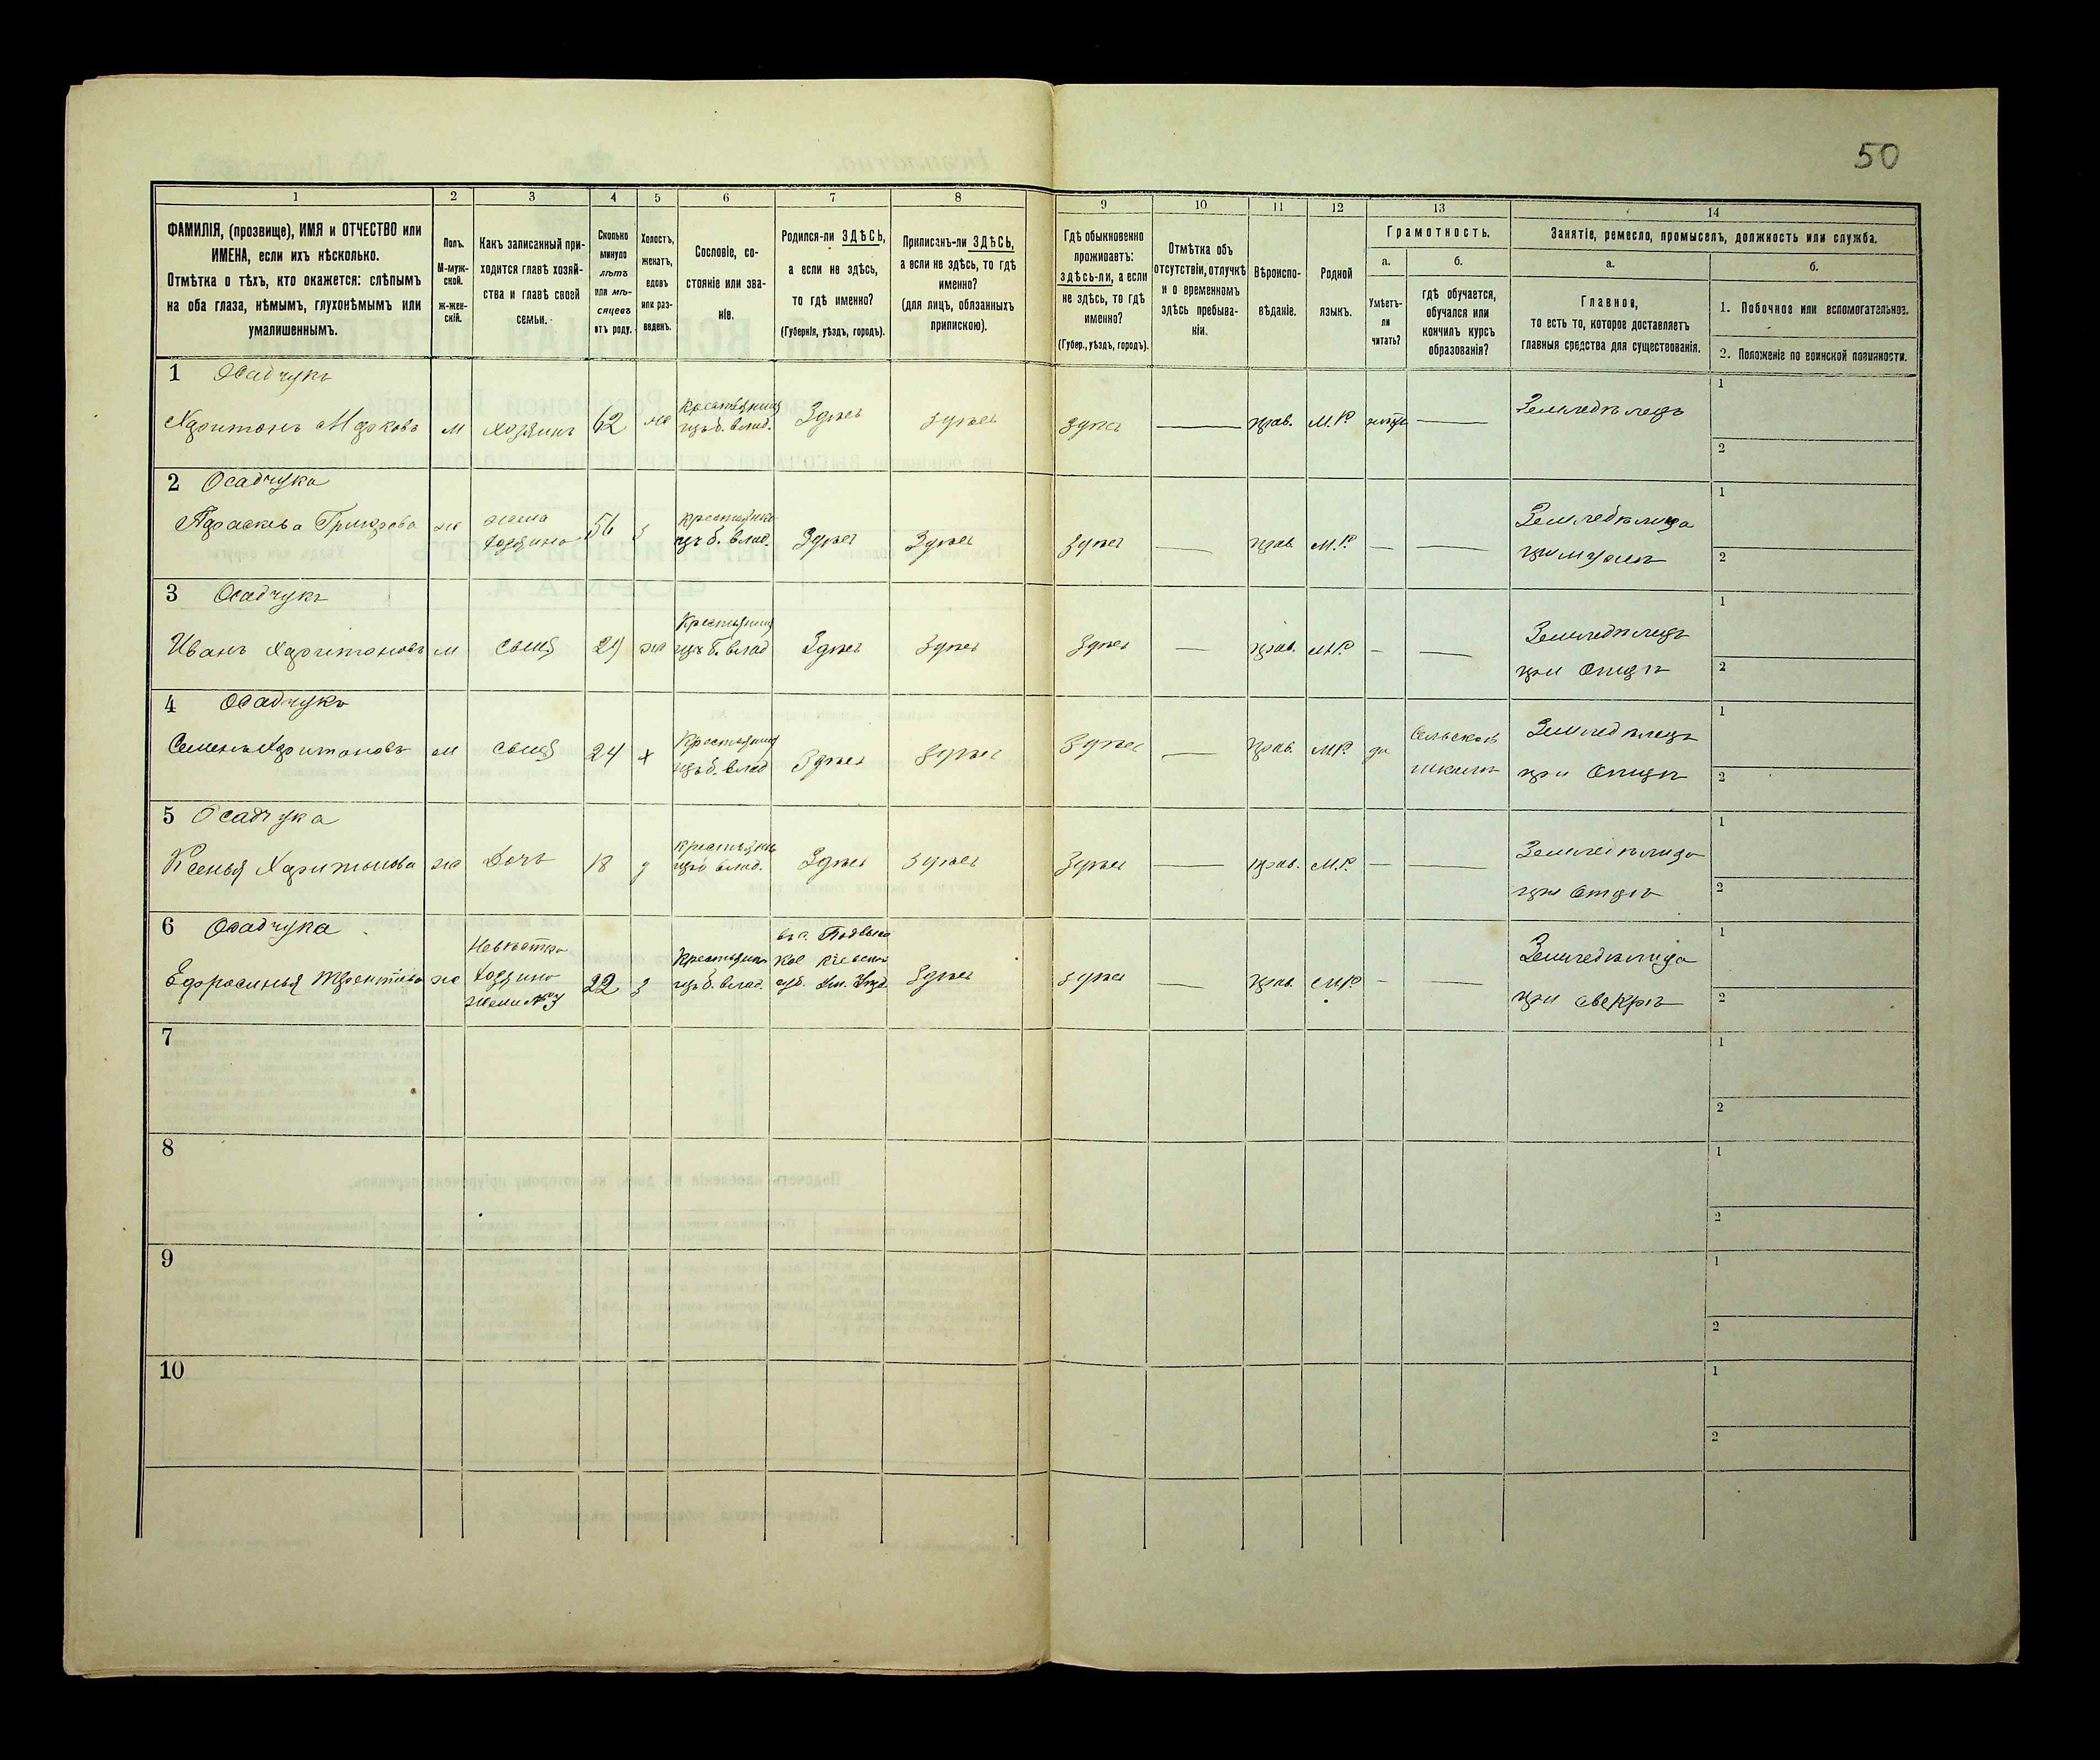 50
1
2
3
4
5
6
7
8
9
10
11
12
13
14
ФАМИЛІЯ, (прозвище), ИМЯ и ОТЧЕСТВО или
ИМЕНА, если ихъ нѣсколько.
Отмѣтка о тѣхъ, кто окажется: слѣпымъ
на оба глаза, нѣмымъ, глухонѣмымъ или
умалишеннымъ.
Полъ.
М-муж-
ской.
ж-жен-
скій.
Какъ записанный при-
ходится главѣ хозяй-
ства и главѣ своей
семьи.
Сколько
минуло
лѣтъ
или мѣ-
сяцевъ
отъ роду.
Холостъ,
женатъ,
вдовъ
или раз-
веденъ.
Сословіе, со-
стояніе или зва-
ніе.
Родился-ли ЗДѢСЬ,
а если не здѣсь,
то гдѣ именно?
(Губернія, уѣздъ, городъ).
Приписанъ-ли ЗДѢСЬ,
а если не здѣсь, то гдѣ
именно?
(для лицъ, обязанныхъ
припискою).
Гдѣ обыкновенно
проживаетъ:
здѣсь-ли, а если
не здѣсь, то гдѣ
именно?
(Губер., уѣздъ, городъ).
Отмѣтка объ
отсутствіи, отлучкѣ
и о временномъ
здѣсь пребыва-
ніи.
Вѣроиспо-
вѣданіе.
Родной
языкъ.
Грамотность.
а.
Умѣетъ-
ли
читать?
б.
гдѣ обучается,
обучался или
кончилъ курсъ
образованія?
Занятіе, ремесло, промыселъ, должность или служба.
а.
Главное,
то есть то, которое доставляетъ
главныя средства для существованія.
б.
1. Побочное или вспомогательное.
2. Положеніе по воинской повинности.
1 Осадчукъ
Харитонъ Марковъ м хозяинъ 62 же Крестьянинъ
изъ б. влад. Здѣсь здѣсь здѣсь — прав. М.Р. нѣтъ — Земледѣлецъ
1
2
2 Осадчука
Параскева Григорова же жена
хозяина 56 з крестьянка
изъ б. влад. Здѣсь Здѣсь здѣсь — прав. М.Р. — — Земледѣлица
при мужѣ
1
2
3 Осадчукъ
Иванъ Харитоновъ м сынъ 29 же Крестьянинъ
изъ б. влад Здѣсь Здѣсь Здѣсь — прав. М.Р. - — Земледѣлецъ
при Отцѣ
1
2
4 Осадчукъ
Семенъ Харитоновъ м сынъ 24 х Крестьянинъ
изъ б. влад Здѣсь Здѣсь Здѣсь — прав. М.Р. да Сельской
школѣ Земледѣлецъ
при Отцѣ
1
2
5 Осадчука
Ксенья Харитонова же Дочь 18 д крестьянка
изъ б влад. Здѣсь Здѣсь Здѣсь — прав. М.Р. — — Земледѣлица
при Отцѣ
1
2
6 Осадчука
Ефросинья Терентіева же Невѣстка
хозяина
жена №3 22 з Крестьянка
изъ б. влад. въ с. Подвысо
кое Кіевской
губ. Ум. Уѣзд. Здѣсь здѣсь — прав. М.Р. - — Земледѣлица
при свекрѣ
1
2
7
1
2
8
1
2
9
1
2
10
1
2